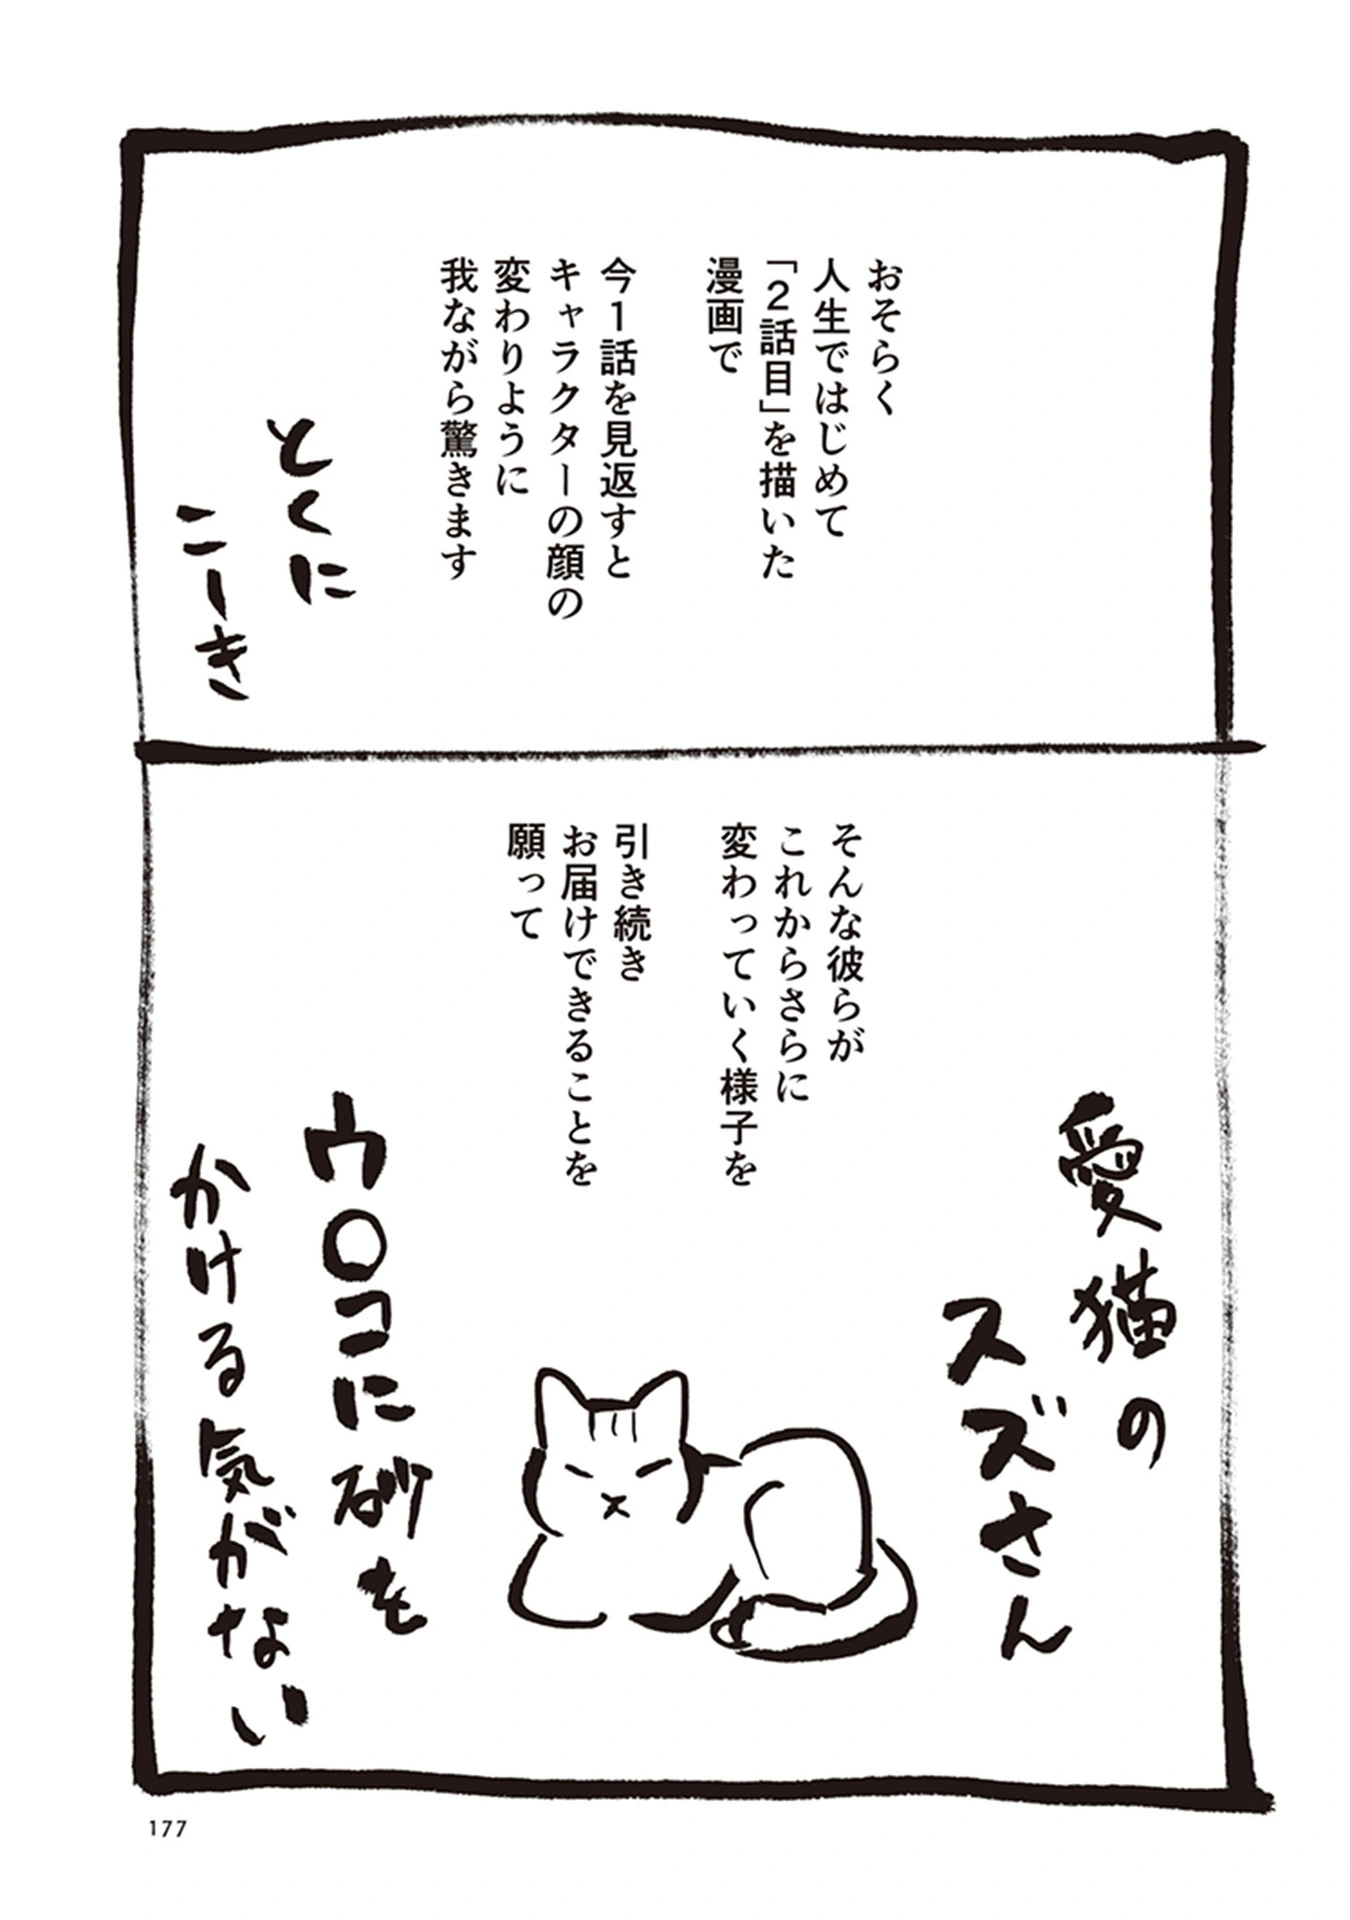 おそらく
人生ではじめて
「2話目」を描いた
漫画で
今1話を見返すと
キャラクターの顔の
変わりように
我ながら驚きます
とくに
こーき
そんな彼らが
これからさらに
変わっていく様子を
引き続き
お届けできることを
願って
愛猫の
スズさん
ウ〇コに砂を
かける気がない
177